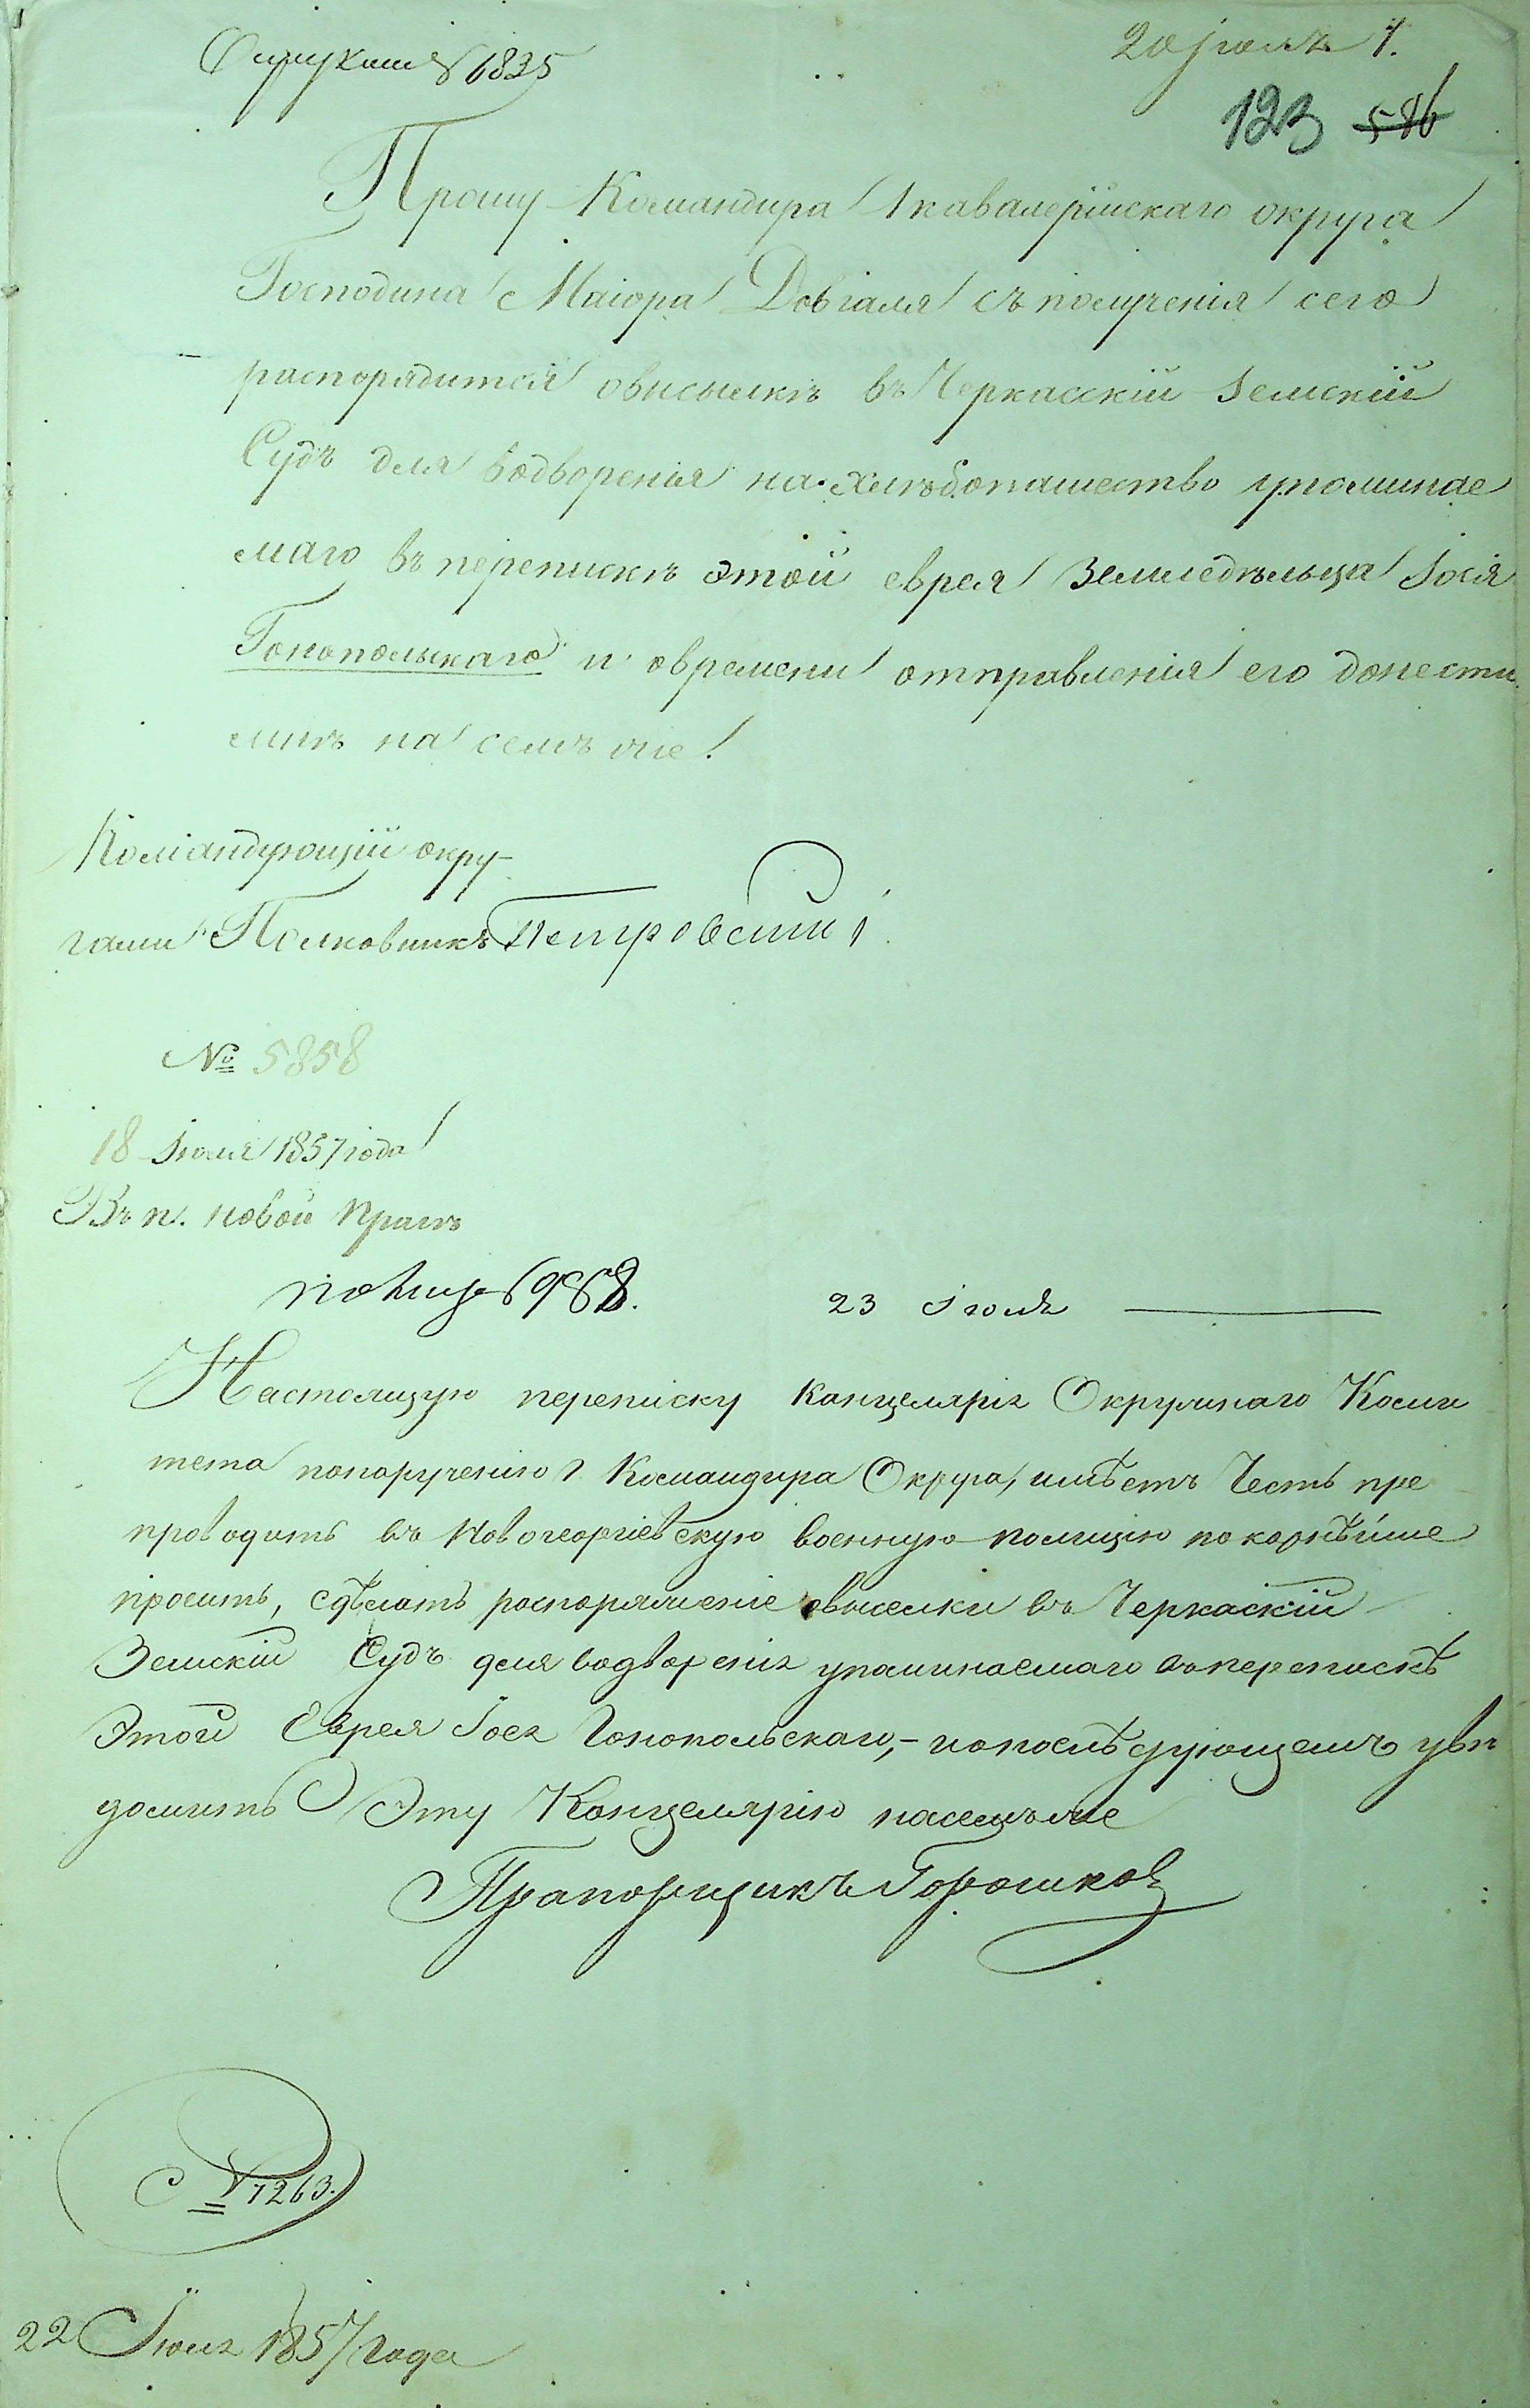 6835
20 Іюля
123 586
Прошу Командира 1 кавалерійскаго округа
Господина Маіора Довгаля съ полученія сего
распорядится овысылкѣ въ Черкасскій Земскій
Судъ для водворенія на хлѣбопашество упоминае
маго въ перепискѣ этой еврея Земледѣльца Іося
Гонопольскаго и овремени отправленія его донести
мнѣ на семъ же.
Командующій окру-
гами Полковникъ Петровскій
№ 5858
18 Іюля 1857 года
Въ п. Новой Прагѣ
6968.
23 Іюля
Настоящую переписку Канцелярія Окружнаго Коми
тета попорученію г. Командира Округа, имѣетъ Честь пре
проводить въ Новогеоргіевскую военную полицію покорнѣйше
просить, сдѣлать распоряженіе овысылки въ Черкаскій
Земскій Судъ для водворенія упоминаемаго въперепискѣ
Этой Еврея Іося Гонопольскаго,- ипослѣдующемъ увѣ
домить Эту Канцелярію насемъже
Прапорщикъ Горошковъ
№ 1263.
22 Іюля 1857 года